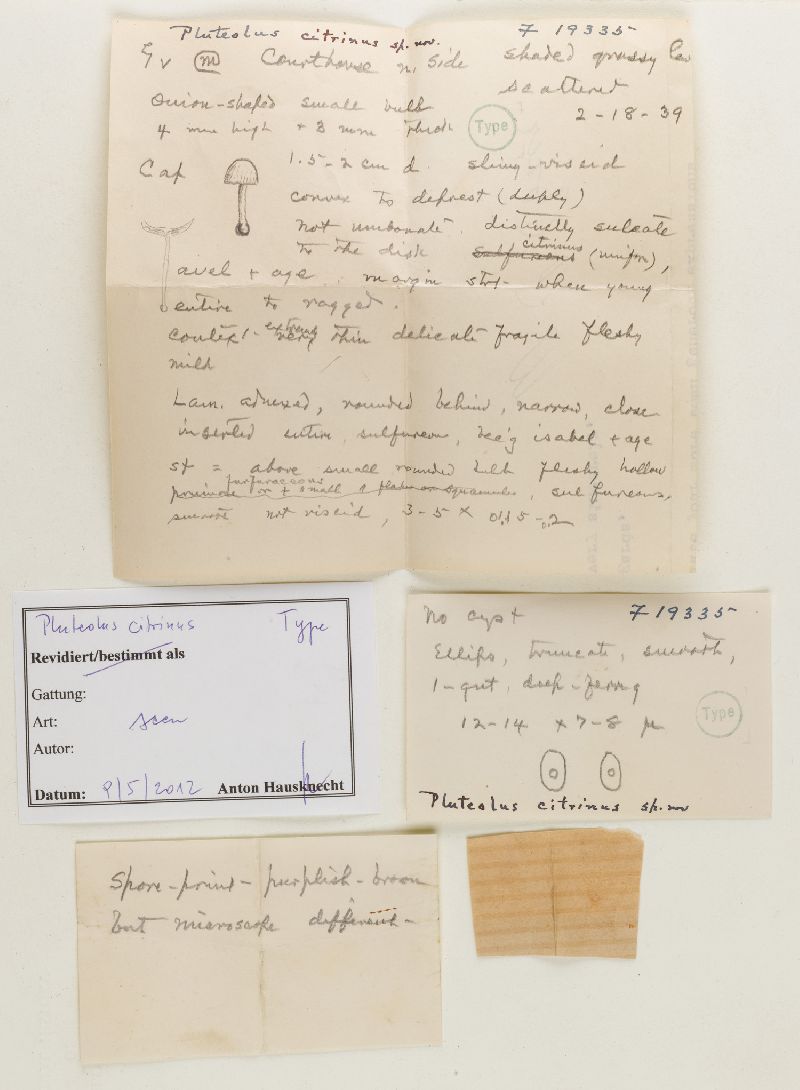 Pluteolus citrinus sp. nov. F 19335
Gv m Courthouse N. Side shaded grassy
scattered
Onion-shaped small bulb
2-18-39
4 mm high + 3 mm thick
Type
Cap 1.5-2 cm d. slimy-viscid
convex to deprest (deeply)
not umbonate, distinctly sulcate
citrinus
to the disk sulfureous (unifor),
avel + age margin strt when young
entire to ragged.
extreme
context- very thin delicate fragile fleshy
mild
Lam. adnexed, rounded behind, narrow, close
inserted entire, sulfureou, bec'g isabel + age
st = above small rounded bulb fleshy hollow
furfuraceous
pruinose or + small flakes or squamules, sulfureous,
smooth not viscid, 3-5 x 0.15-0.2
No cyst F 19335
Ellips, truncate, smooth,
1-gut, deep-ferrug
12-14 x 7-8 µ
Type
Pluteolus citrinus sp. nov
Pluteolus citrinus Type
Revidiert/bestimmt als
Gattung:
Art:
Autor:
Datum: 9/5/2012 Anton Hausknecht
Spore-print- purplish-brown
but microscope different-